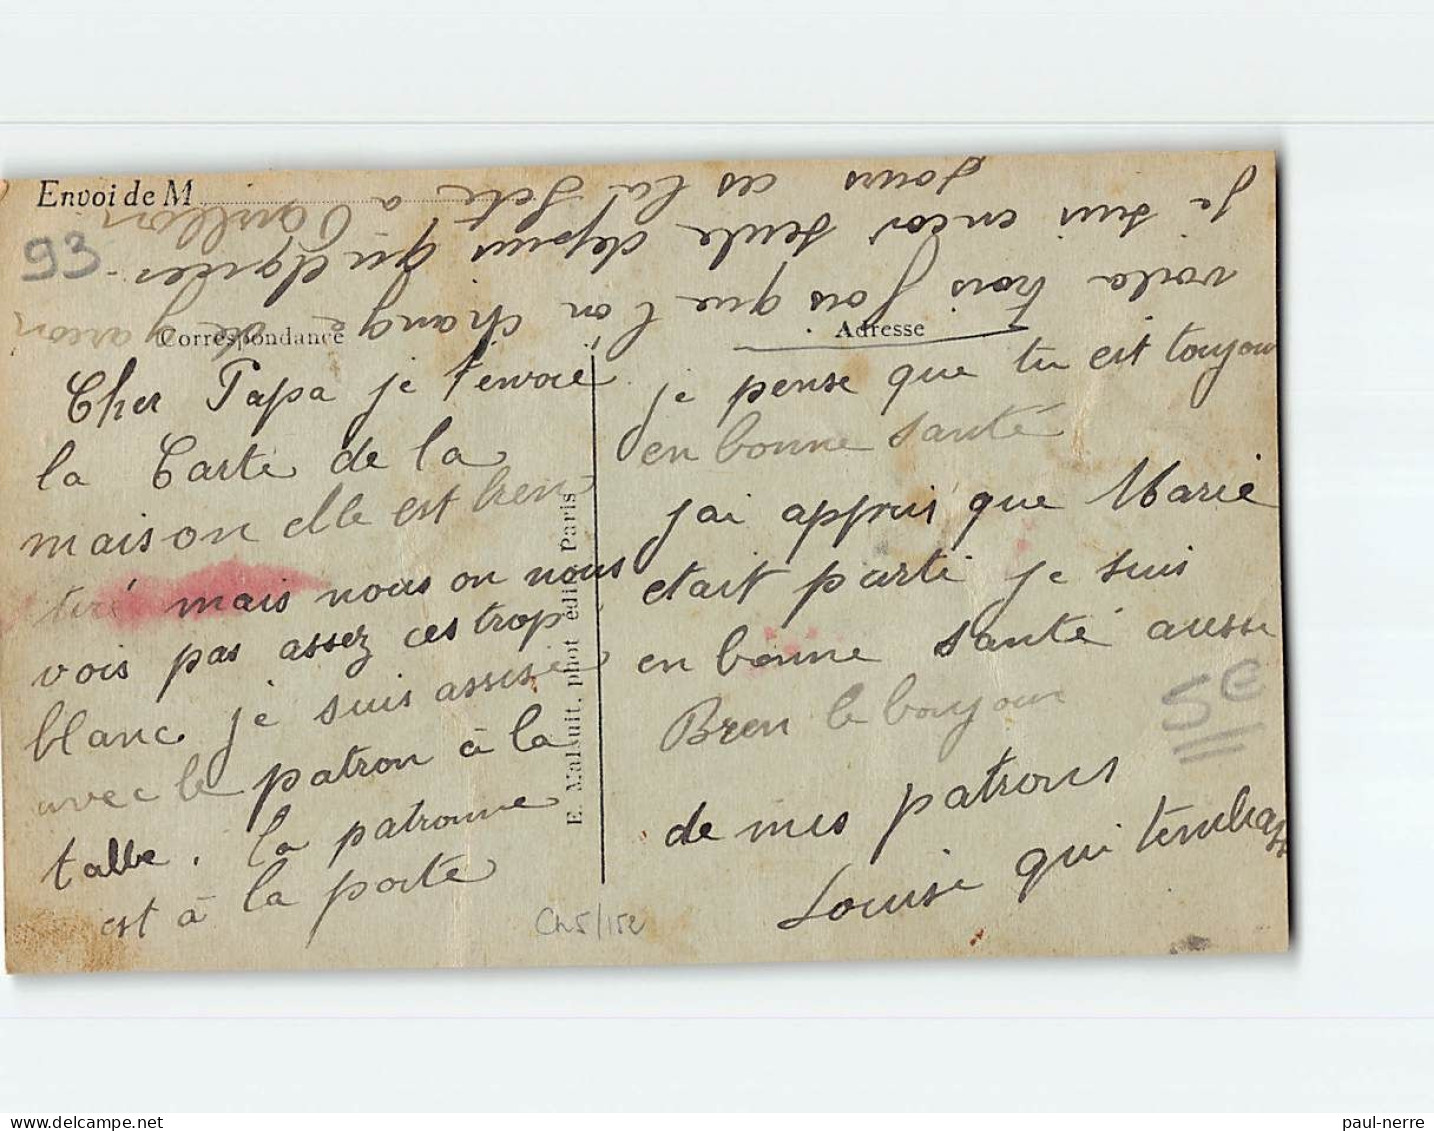 Envoi de M
93
Correspondance
Adresse
Cher Papa je t'envoie
la Carte de la
maison elle est bien
tiré mais nous on nous
vois pas assez ces trop
blanc je suis assise
avec le patron à la
table. la patronne
est à la porte
je pense que tu est toujour
en bonne santé
j'ai appris que Marie
etait parti je suis
en bonne santé aussi
Bien le boujour
de mes patrons
Louise qui t'embrass
je suis encor seule depuis quelques
jours ces la fete a
voila trois fois que l'on change de garcon
E. Malcuit, phot édit Paris
5€
Ch5/152
paul-nerre